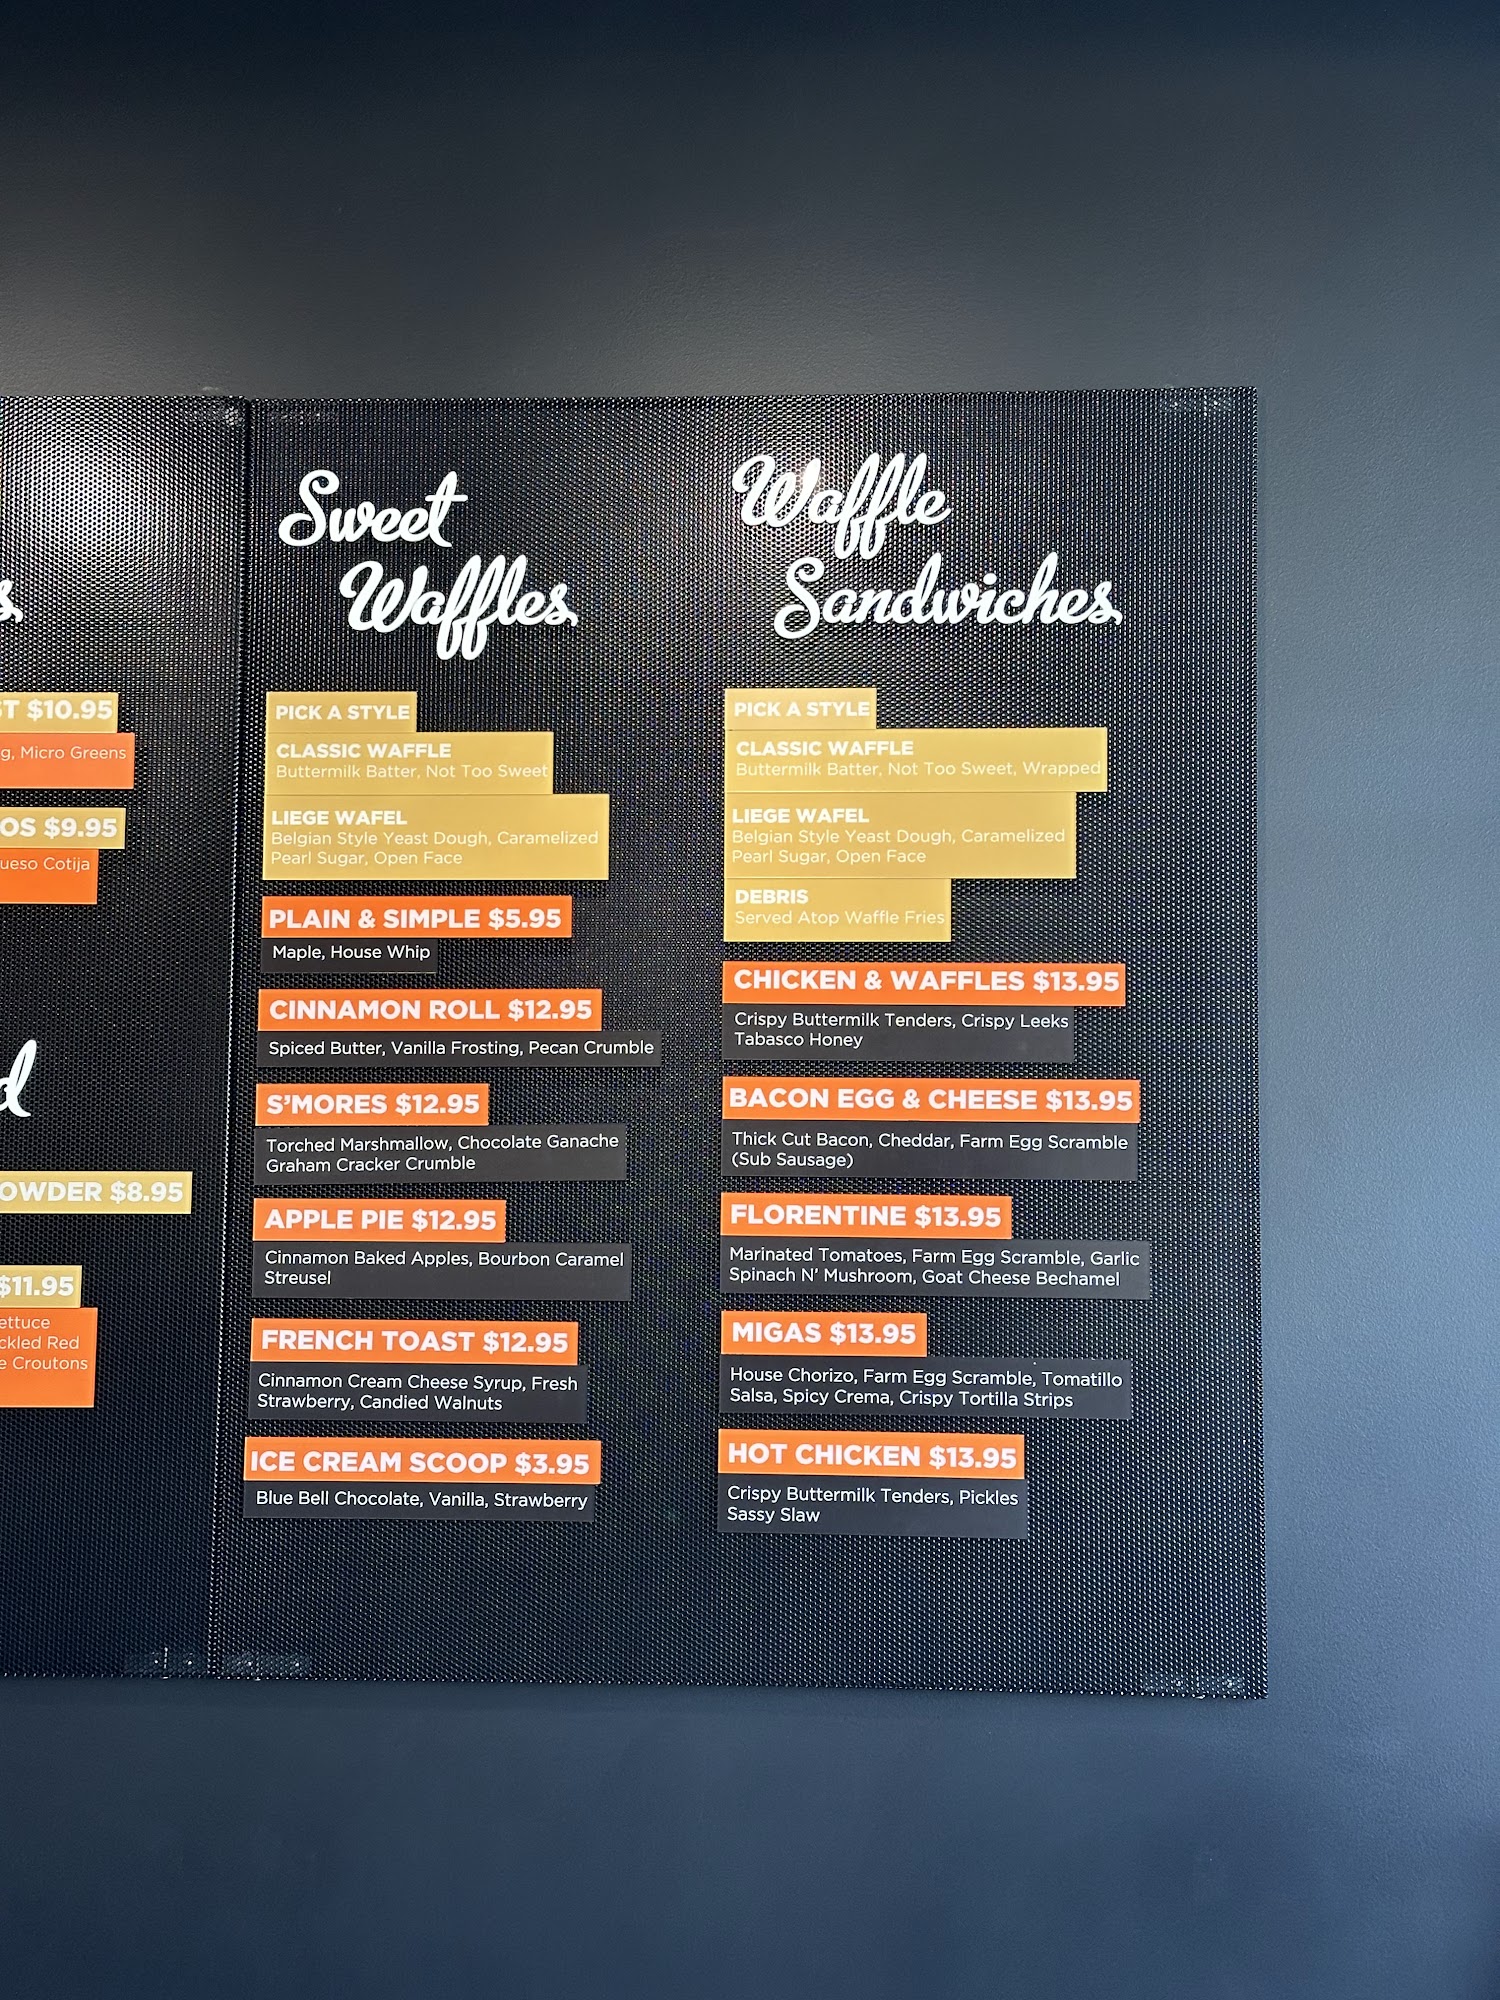 $10.95
Micro Greens
$9.95
Cotija
$8.95
$11.95
Red
Croutons
Sweet
Waffles
PICK A STYLE
CLASSIC WAFFLE
Buttermilk Batter, Not Too Sweet
LIEGE WAFEL
Belgian Style Yeast Dough, Caramelized
Pearl Sugar, Open Face
PLAIN & SIMPLE $5.95
Maple, House Whip
CINNAMON ROLL $12.95
Spiced Butter, Vanilla Frosting, Pecan Crumble
S'MORES $12.95
Torched Marshmallow, Chocolate Ganache
Graham Cracker Crumble
APPLE PIE $12.95
Cinnamon Baked Apples, Bourbon Caramel
Streusel
FRENCH TOAST $12.95
Cinnamon Cream Cheese Syrup, Fresh
Strawberry, Candied Walnuts
ICE CREAM SCOOP $3.95
Blue Bell Chocolate, Vanilla, Strawberry
Waffle
Sandwiches
PICK A STYLE
CLASSIC WAFFLE
Buttermilk Batter, Not Too Sweet, Wrapped
LIEGE WAFEL
Belgian Style Yeast Dough, Caramelized
Pearl Sugar, Open Face
DEBRIS
Served Atop Waffle Fries
CHICKEN & WAFFLES $13.95
Crispy Buttermilk Tenders, Crispy Leeks
Tabasco Honey
BACON EGG & CHEESE $13.95
Thick Cut Bacon, Cheddar, Farm Egg Scramble
(Sub Sausage)
FLORENTINE $13.95
Marinated Tomatoes, Farm Egg Scramble, Garlic
Spinach N' Mushroom, Goat Cheese Bechamel
MIGAS $13.95
House Chorizo, Farm Egg Scramble, Tomatillo
Salsa, Spicy Crema, Crispy Tortilla Strips
HOT CHICKEN $13.95
Crispy Buttermilk Tenders, Pickles
Sassy Slaw